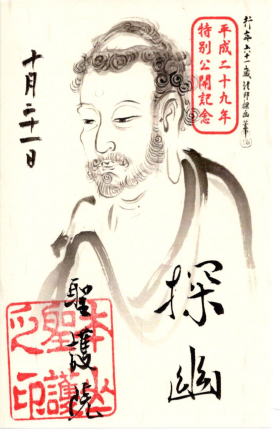 行年六十一歳法印探幽筆
平成二十九年
特別公開記念
探幽
聖護院
十月二十一日